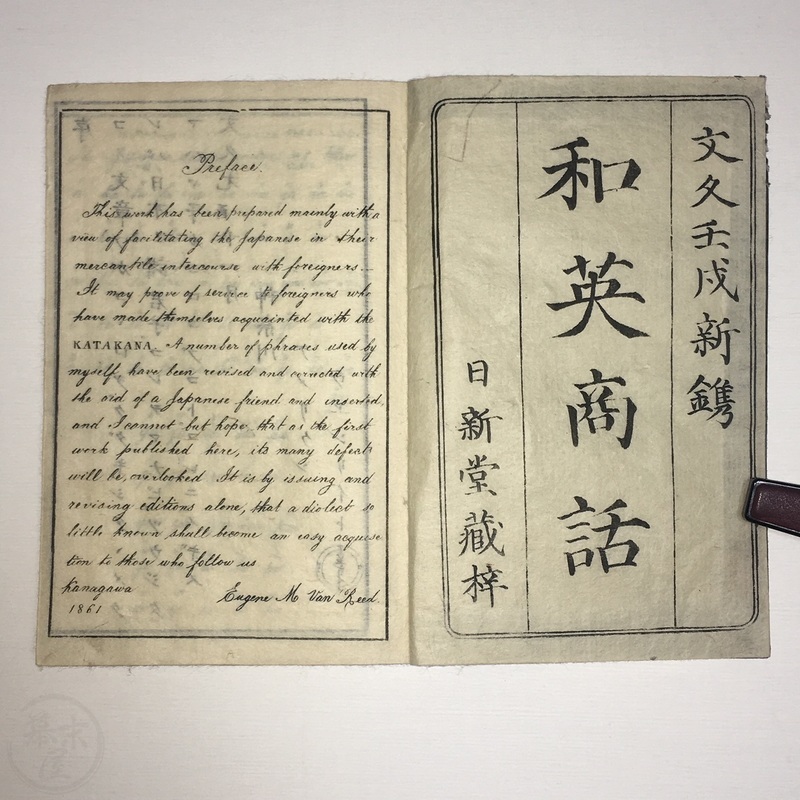 文久壬戌新鐫
和英商話
日新堂藏梓
Preface.
This work has been prepared mainly with a
view of facilitating the Japanese in their
mercantile intercourse with foreigners.–
It may prove of service to foreigners who
have made themselves acquainted with the
KATAKANA. A number of phrases used by
myself have been revised and corrected with
the aid of a Japanese friend and inserted,
and I cannot but hope, that as the first
work published here, its many defects
will be overlooked It is by issuing and
revising editions alone, that a dialect so
little known shall become an easy acquisi
tion to those who follow us
Kanagawa
1861
Eugene M Van Reed.
幕末屋